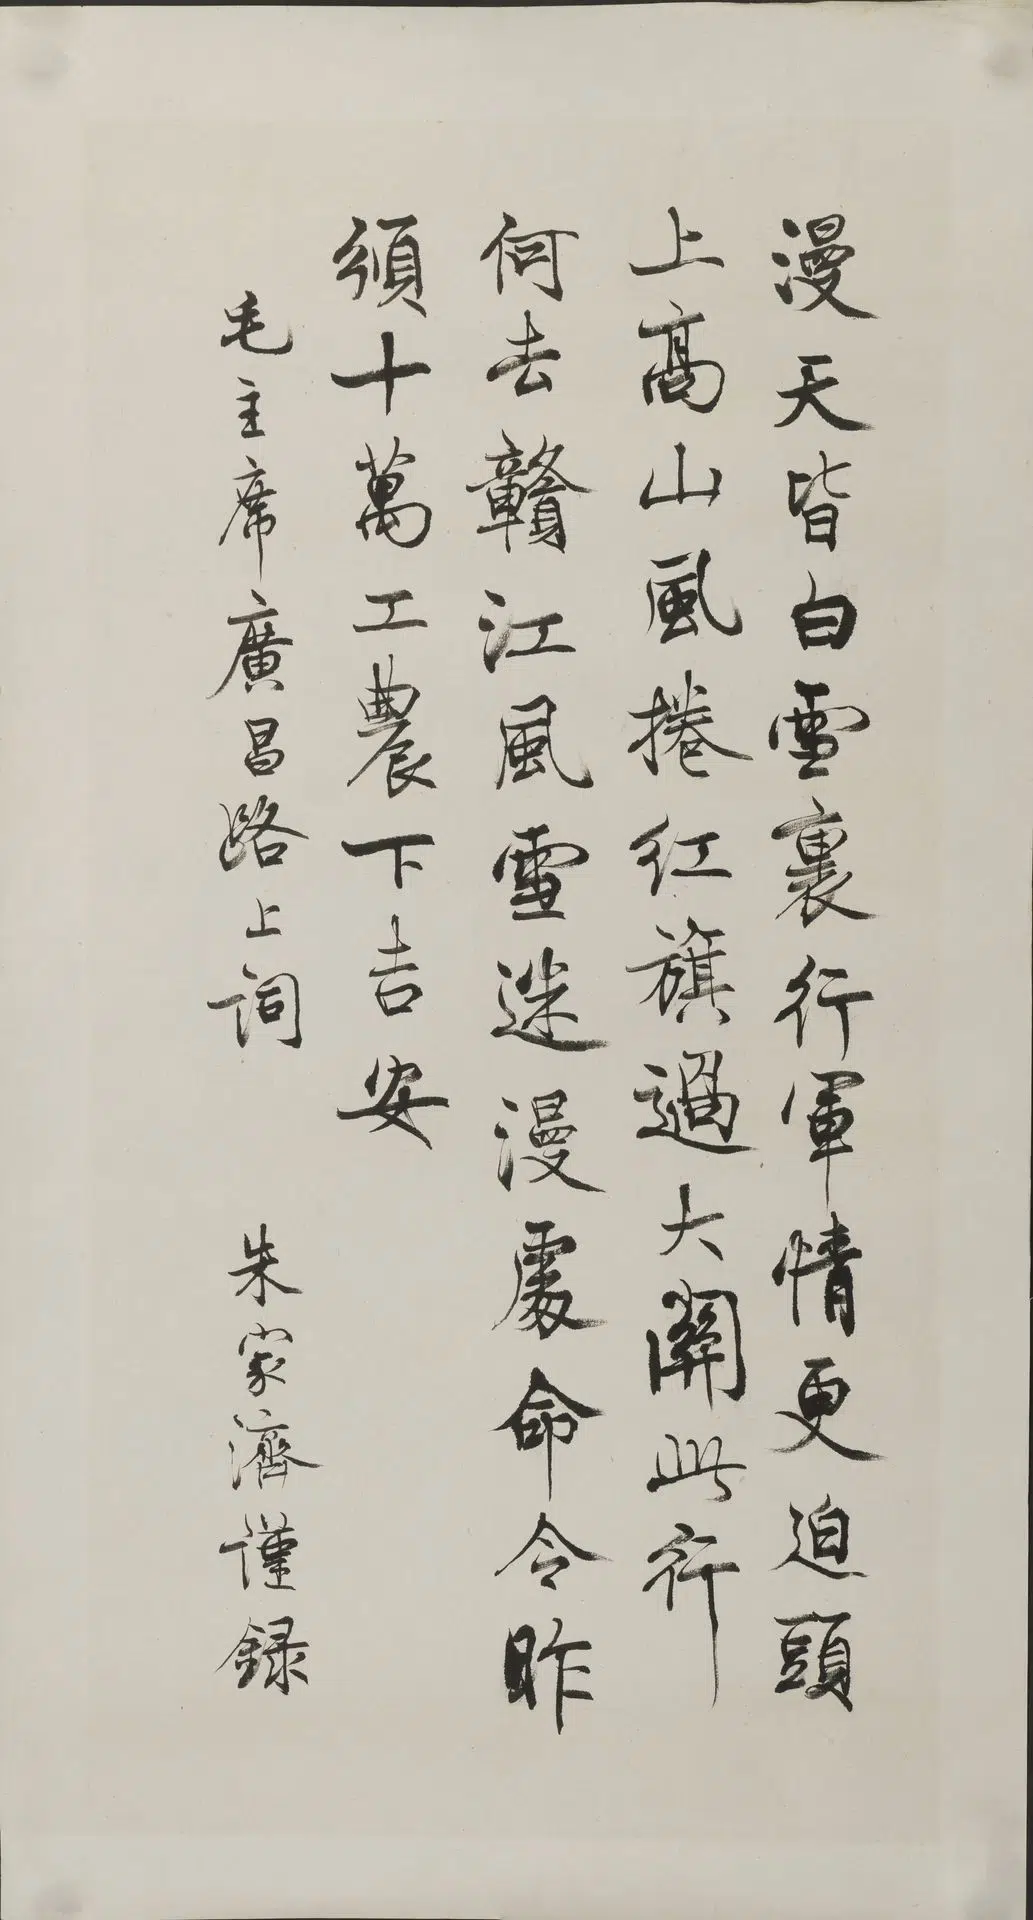 漫天皆白雪裏行軍情更迫頭
上高山風捲红旗過大關此行
何去贛江風雪迷漫處命令昨
頒十萬工農下吉安
毛主席廣昌路上詞 朱家濟謹録